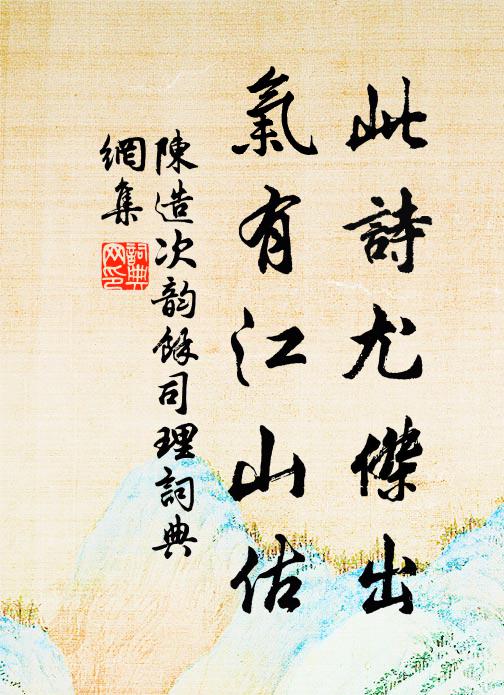 此詩尤傑出
氣有江山估
陳造次韵餘司理詞典
網集
詞典
网印